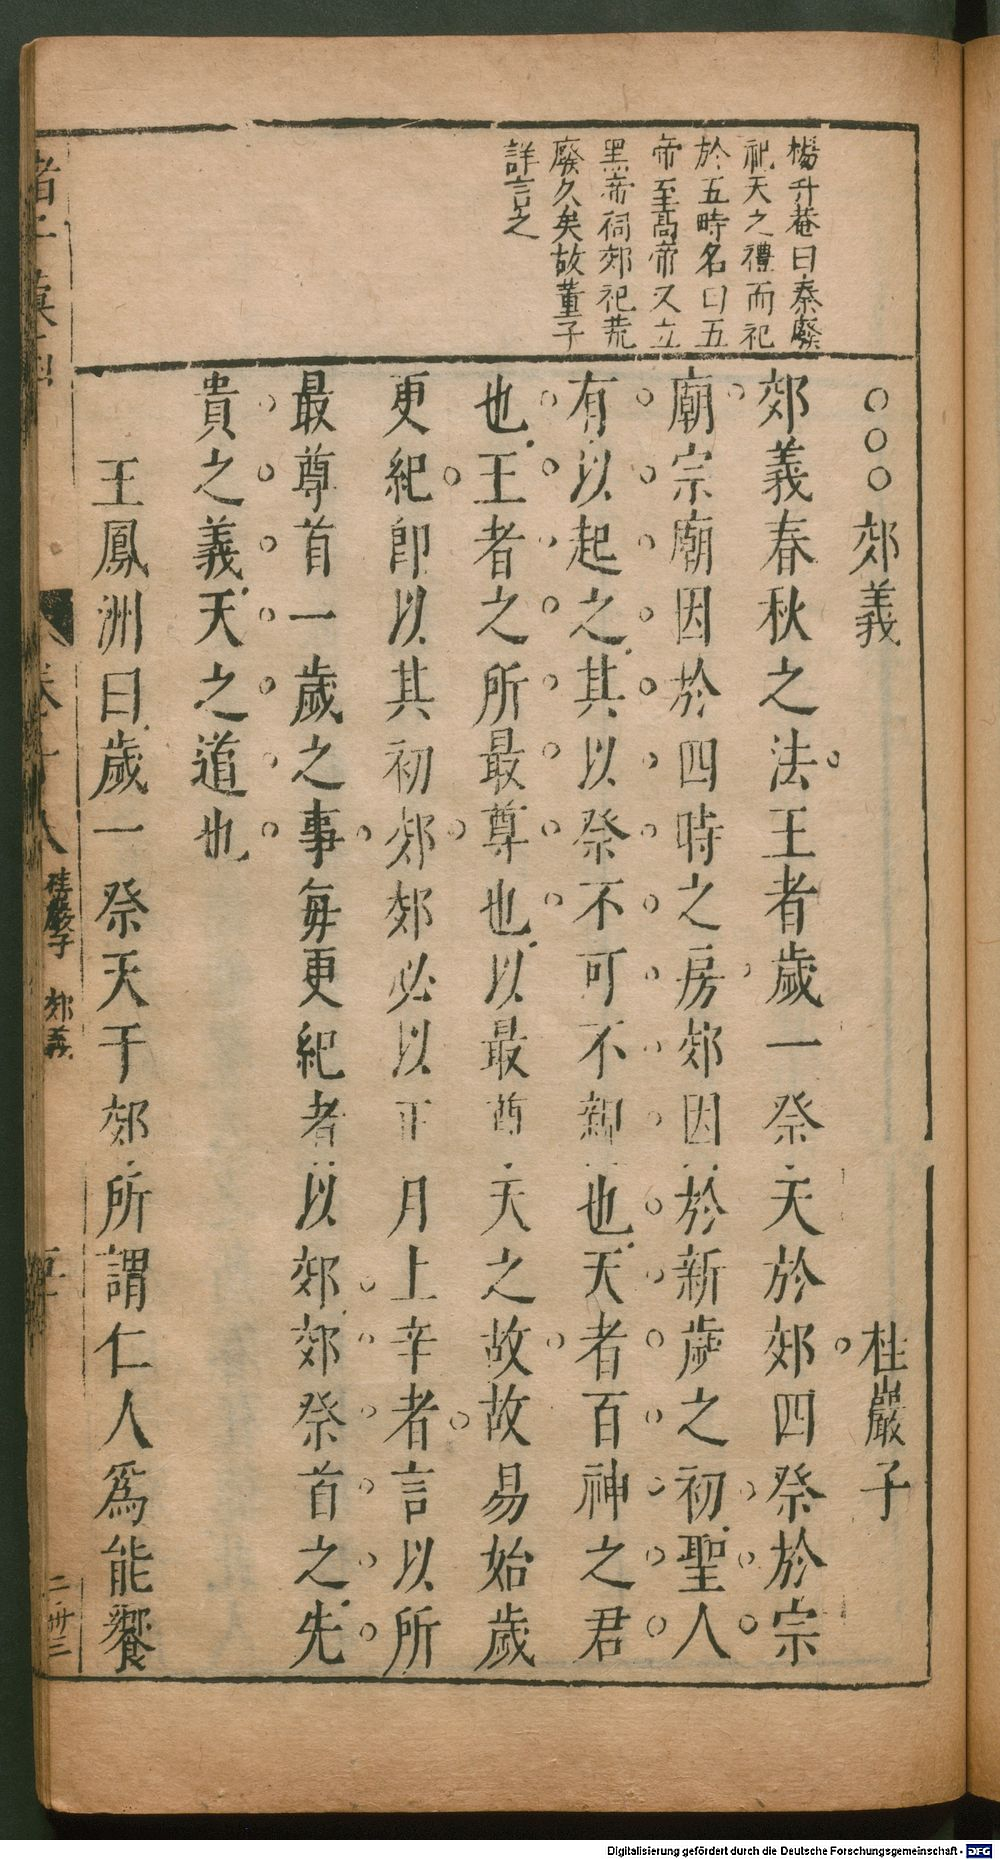 楊升菴曰秦廢
祀天之禮而祀
於五時名曰五
帝至髙帝又立
黑帝祠郊祀荒
廢久矣故董子
詳言之
○○○郊義
桂巖子
郊義春秋之法王者歲一祭天於郊四祭於宗
廟宗廟因於四時之房郊因於新歲之初聖人
有以起之其以祭不可不親也天者百神之君
也王者之所最尊也以最尊天之故故易始歲
更紀卽以其初郊郊必以正月上辛者言以所
最尊首一歲之事每更紀者以郊郊祭首之先
貴之義天之道也
王鳳洲曰歲一祭天于郊所謂仁人爲能饗
卷十八
桂巖子
郊義
Digitalisierung gefördert durch die Deutsche Forschungsgemeinschaft - DFG